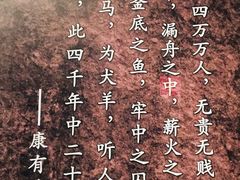 四万万人，无贵无贱
，漏舟之中，薪火之
釜底之鱼，牢中之囚
马，为犬羊，听人
，此四千年中二十
——康有